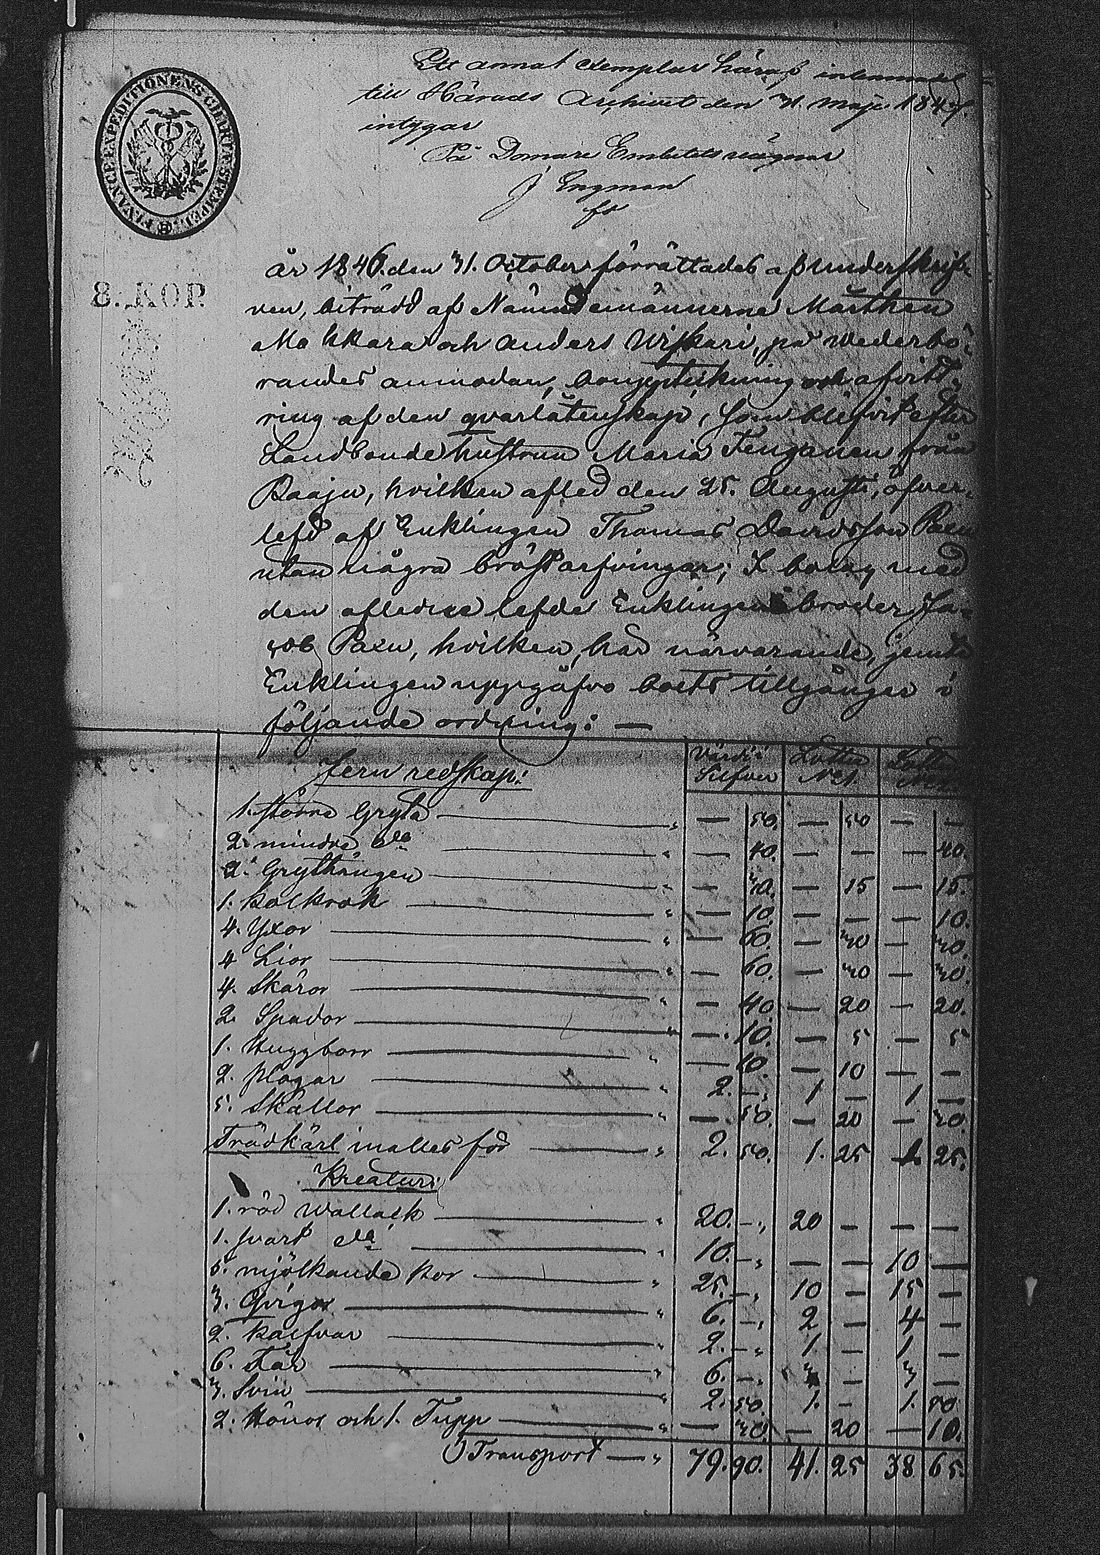 Ett annat exemplar häraf inlemnadt
till Härads Archivet den 31. Maji 1847.
intygar
På Domare Embetets vägnar
J Engman
FINANCE EXPEDITIONENS CHARTÆ STEMPEL
8. KOP.
År 1846. den 31. October förrättades af underskrif-
ven, biträdd af Nämndemännerne Marthen
Makkara och Anders Uiskari, på wederbö-
randes anmodan, bouppteckning och afvitt-
ring af den qvarlåtenskap, som blifvit efter
Landbonde hustrun Maria Tenganen från
Raaju, hvilken afled den 25. Augusti, öfver-
lefd af Enklingen Thomas Davidsson Paxu
utan några bröstarfvingar; I bolag med
den aflednes lefde Enklingens broder Ja-
cob Paxu, hvilken, här närvarande, jemte
Enklingen uppgåfvo boets tillgångar i
följande ordning: —
Jern redskap: Värde i Silfver Lotten N°1. Lotten
1. större Gryta — „ — 50. — 50 — —
2. mindre d:o — „ — 40. — — — 40.
2. Grythängen — „ — 30. — 15 — 15.
1. Kolkrok — „ — 10. — — — 10.
4. Yxor — „ — 60. — 30 — 30.
4 Lior — „ — 60. — 30 — 30.
4. Skäror — „ — 40. — 20 — 20.
2. Spador — „ — 10. — 5 — 5
1. Huggborr — „ — 10. — 10 — —
2. Plogar — „ 2. — „ 1 — 1 —
5. Skällor — „ — 50. — 20 — 30.
Trädkärl i malles för — „ 2. 50. 1. 25 1. 25.
Kreatur:
1. röd Wallack — „ 20. — „ 20 — — —
1. svart d:o — „ 10. — „ — — 10 —
5. mjölkande kor — „ 25. — „ 10 — 15 —
3. Qvigor — „ 6. — „ 2 — 4 —
2. Kalfvar — „ 2. — „ 1. — 1 —
6. Får — „ 6. — „ 3 — 3 —
3. Svin — „ 2. 50. 1. — 1. 50.
2. Hönor och 1. Tupp — „ — 30. — 20 — 10.
Transport — „ 79. 90. 41. 25 38 65.